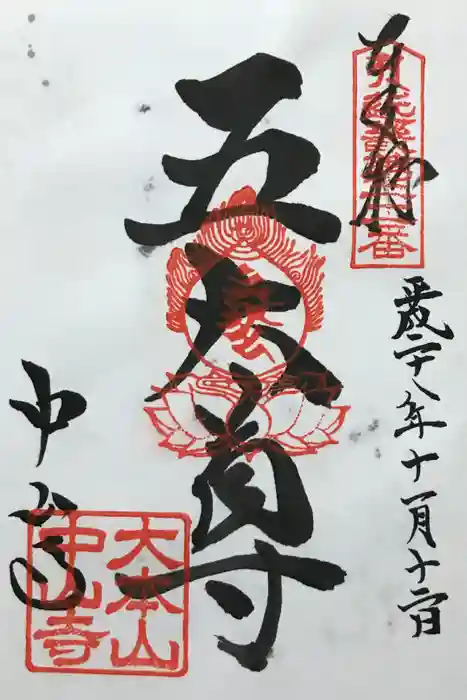 奉拝
平成二十八年十一月十二日
五大尊
中山寺
大本山
中山寺